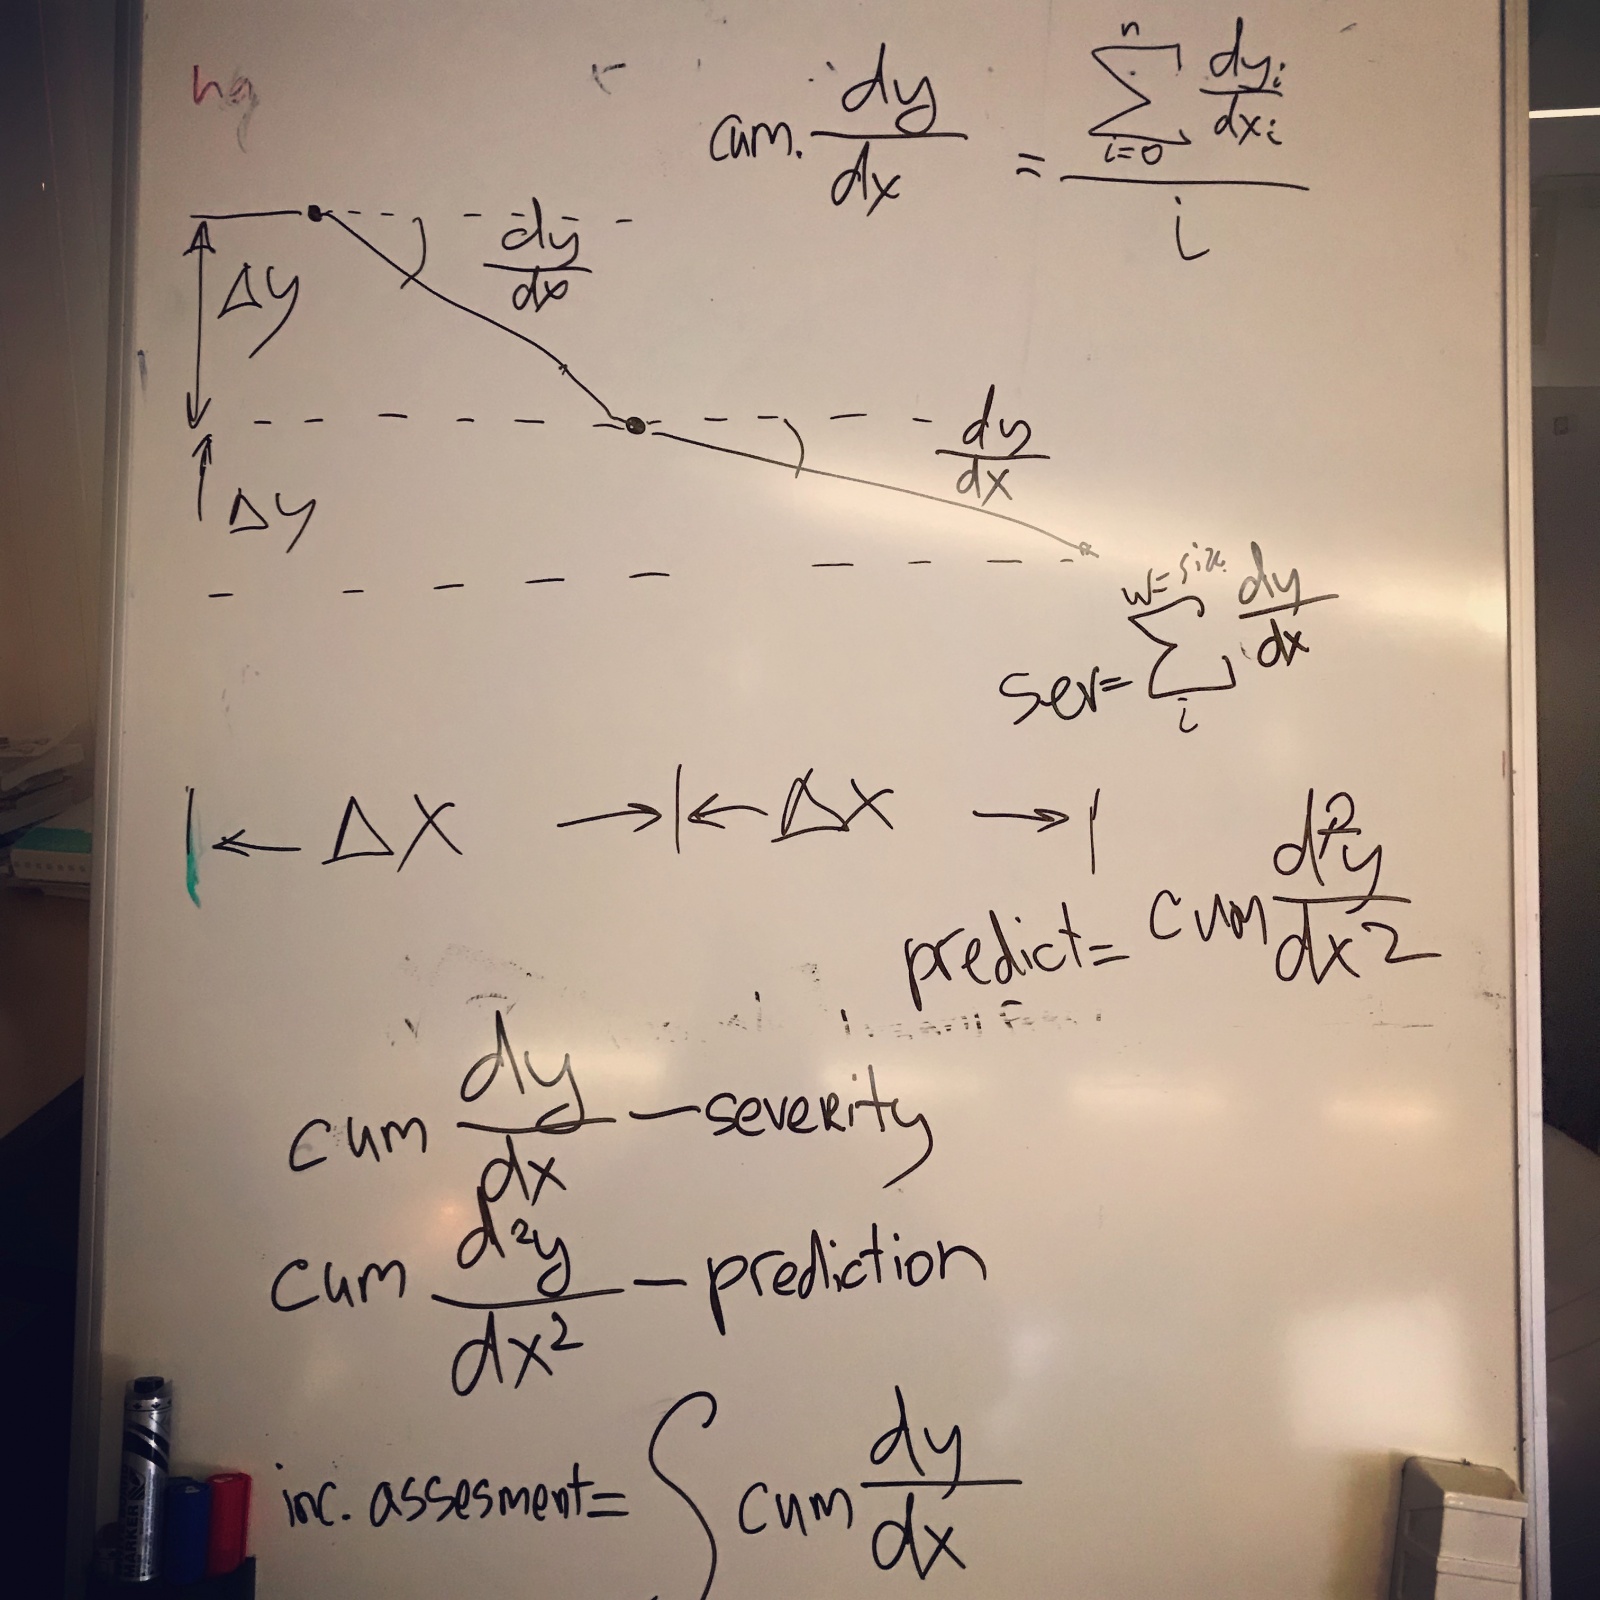 cum. dy/dx = ∑ i=0 n dyi/dxi / i
Δy
dy/dx
dy/dx
Δy
ser= ∑ i w= dy/dx
ΔX
ΔX
predict= cum d²y/dx2
cum dy/dx – severity
cum d²y/dx² – prediction
inc. assesment= ∫ cum dy/dx
MARKER